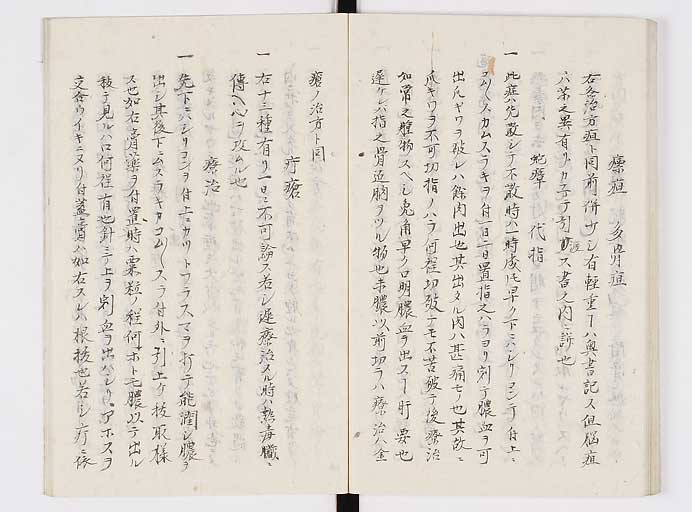 瘭疽
右各治方疽ト同前併少シ有軽重丁ハ奥書記ス但脳疽
六茶之異有リカ子テ
蛇瘴 代指
一 此症ハ先散シテ不散時ハ一時成トモ早ク下ニハシリヨンヲ付上ニ
コムシスカムスラキヲ付一日二日置指之ハラヨリ刺テ膿血ヲ可
出爪キワヲ破レハ餘肉出也其出タル肉ハ甚痛モノ也其故ニ
爪キワヲ不可切指ノハラハ何程切破テモ不苦破テ後療治
如常之腫物スヘシ兎角早ク口明膿血ヲ出ス丁肝要也
遅ケレハ指之骨迄腐ヲツル物也未膿以前切ラハ療治ハ金
瘡ノ治方ト同
疔瘡
一 右十三種有リ一日ニ不可論ス若シ遅療治スル時ハ熱毒臓ニ
傳ヘ心ヲ攻ムル也
療治
一 先下ニハシリヨンヲ付上ニカツトフラスマヲ打テ能潤シ膿ヲ
出シ其後下ニムスラキカコムシスラヲ付外ニ引上ケ抜取様
ス也如右膏薬ヲ付置時ハ粟粒ノ程何ホトモ膿以テ出ル
抜テ見ルハ口何程有也針ニテ上ヲ刺血ヲ出ハシリアホスヲ
交合ワイキニヌリ付蓋膏ハ如右スレハ根抜也若シ疔ニ依